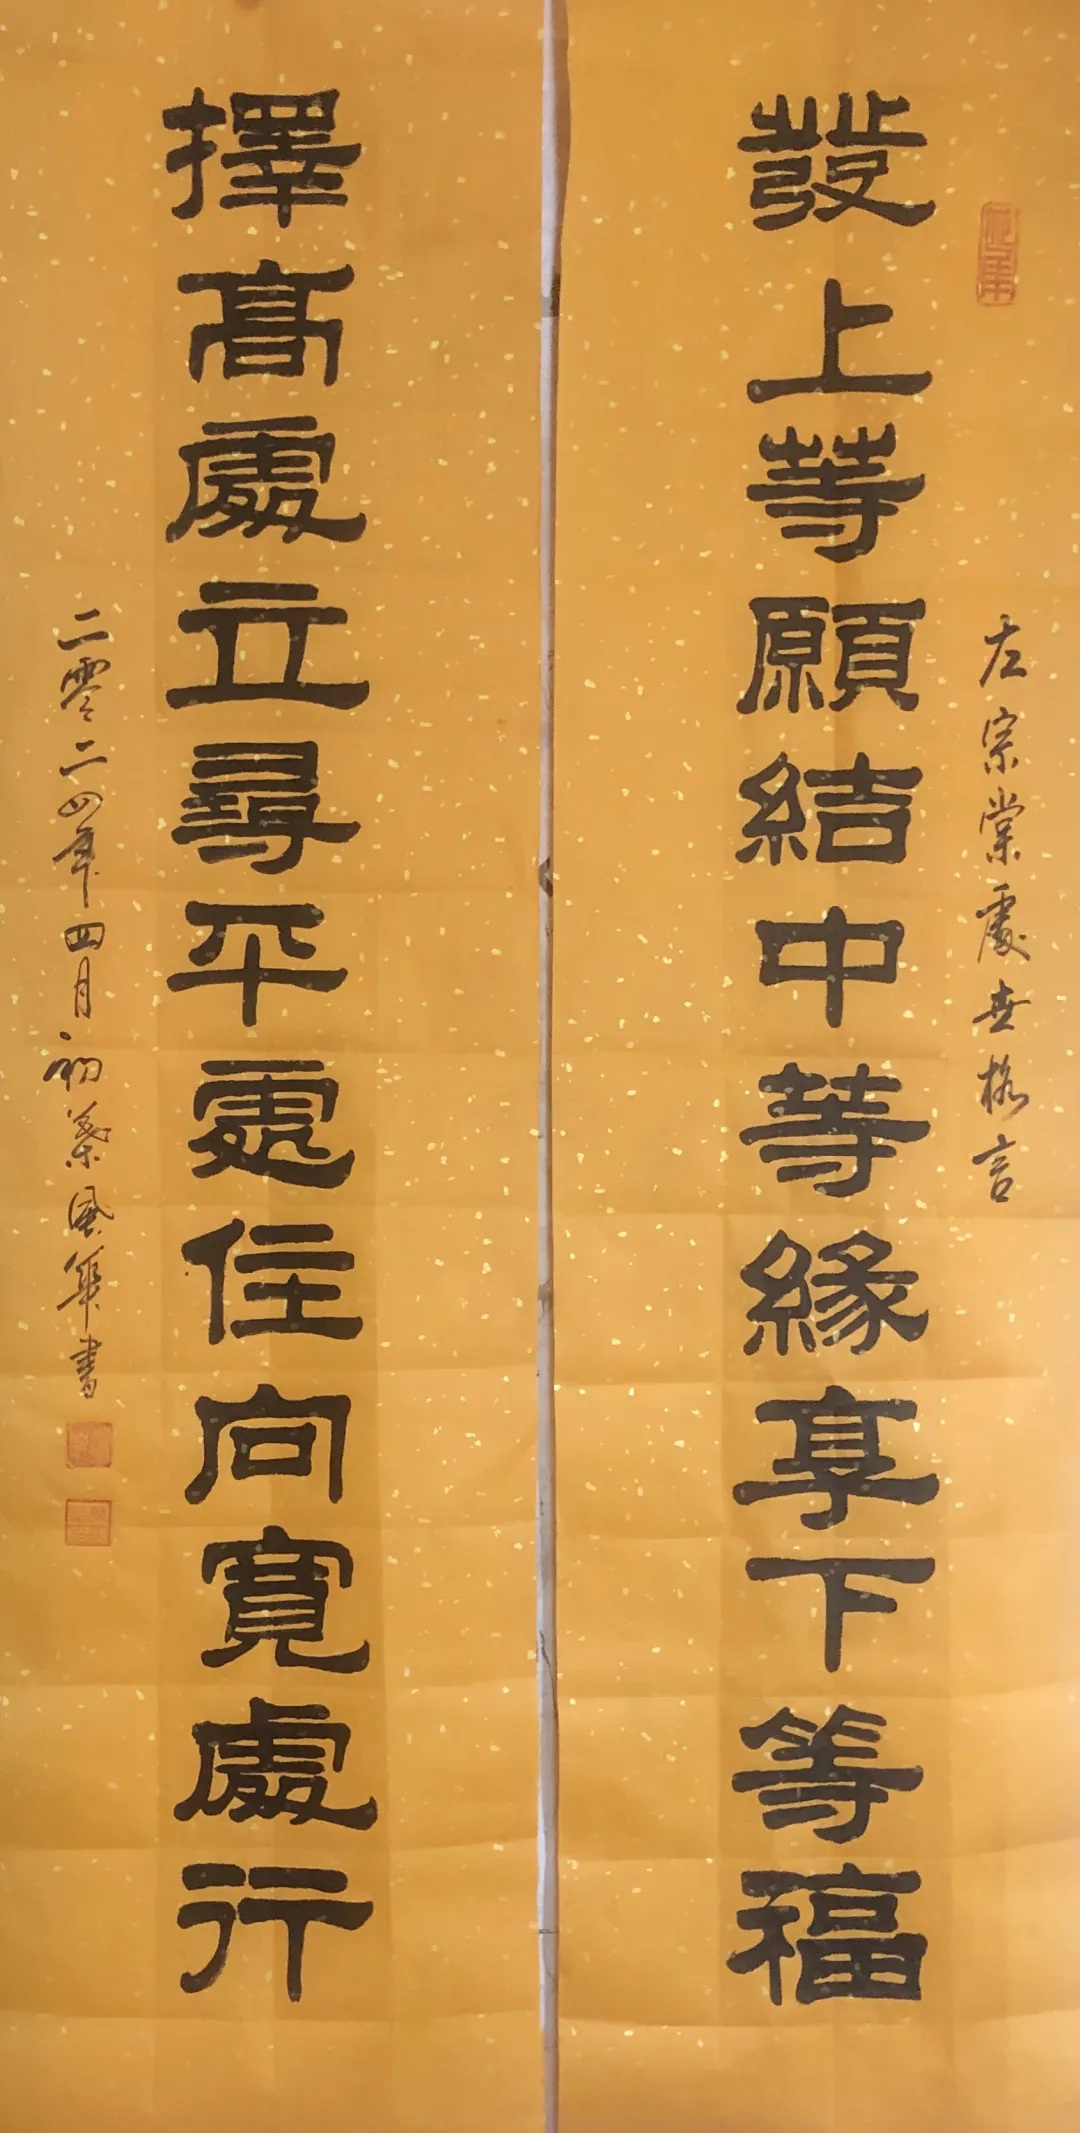 左宗棠處世格言
發上等願結中等緣享下等福
擇高處立尋平處住向寬處行
二零二四年四月初風書